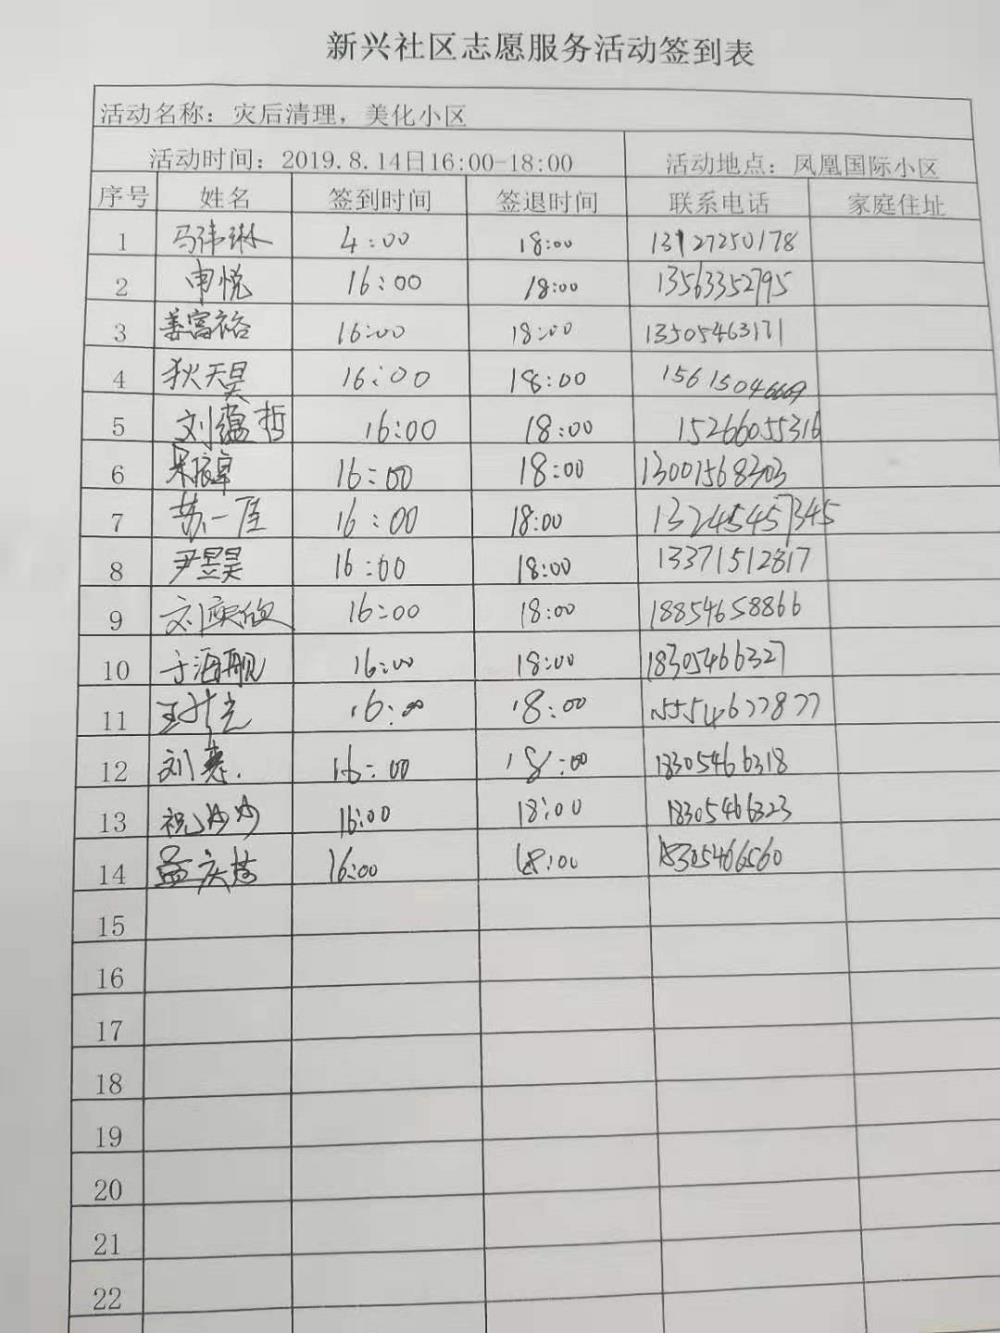 新兴社区志愿服务活动签到表
活动名称：灾后清理，美化小区
活动时间：2019.8.14日16:00-18:00 活动地点：凤凰国际小区
序号 姓名 签到时间 签退时间 联系电话 家庭住址
1 马伟琳 4:00 18:00 13127250178
2 申悦 16:00 18:00 13563352795
3 姜富裕 16:00 18:00 13505463171
4 狄天昊 16:00 18:00 15615046669
5 刘蕴哲 16:00 18:00 15266055316
6 16:00 18:00 13001568303
7 苏一 16:00 18:00 13245457345
8 尹昱昊 16:00 18:00 13371512817
9 刘 16:00 18:00 18854658866
10 于海舰 16:00 18:00 18305466327
11 王 16:00 18:00 15554677877
12 刘 16:00 18:00 18305466318
13 祝沙沙 16:00 18:00 18305466323
14 孟庆 16:00 18:00 18305466560
15
16
17
18
19
20
21
22